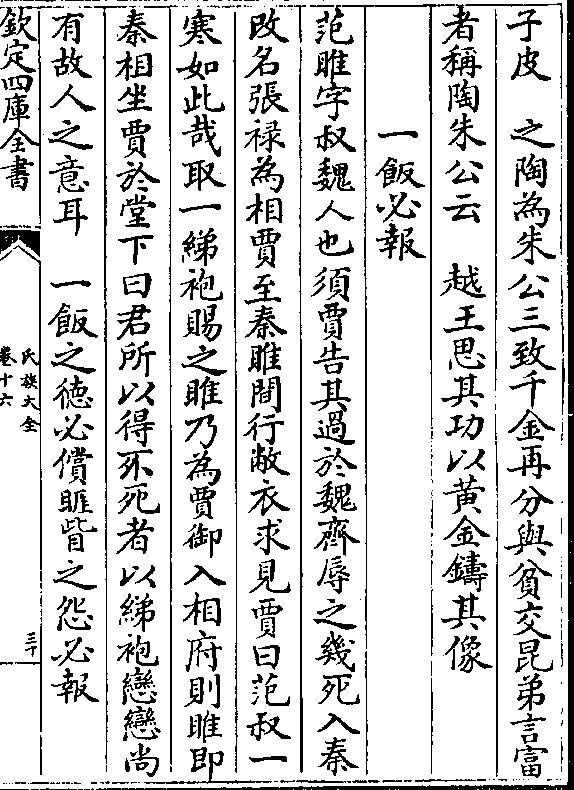 子皮　之陶為朱公三致千金再分與貧交昆弟言富
者稱陶朱公云　越王思其功以黄金鑄其像
一飯必報
范睢字叔魏人也須賈告其過於魏齊辱之幾死入秦
改名張禄為相賈至秦睢間行敝衣求見賈曰范叔一
寒如此哉取一綈袍賜之睢乃為賈御入相府則睢即
秦相坐賈於堂下曰君所以得不死者以綈袍戀戀尚
有故人之意耳　一飯之徳必償睚眥之怨必報
欽定四庫全書
氏族大全
卷十六
三十